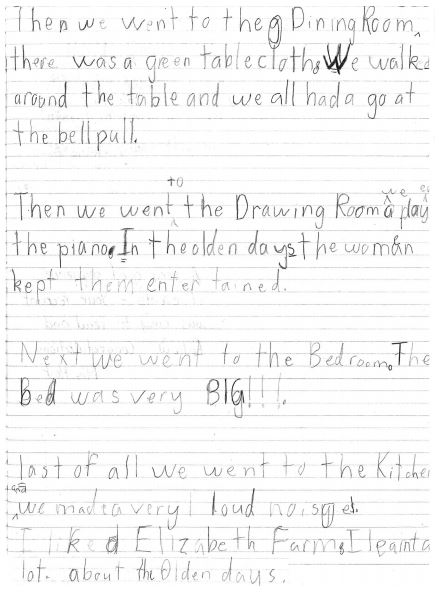 Then we went to the Dining Room,
there was a green table cloth. We walked
around the table and we all had a go at
the bell pull.
Then we went to the Drawing Room a we play
the piano. In the olden days the woman
kept them entertained.
Next we went to the Bedroom. The
Bed was very BIG!!!.
last of all we went to the Kitchen
and we made a very loud noise.
I liked Elizabeth Farm. I learnt a
lot. about the Olden days.